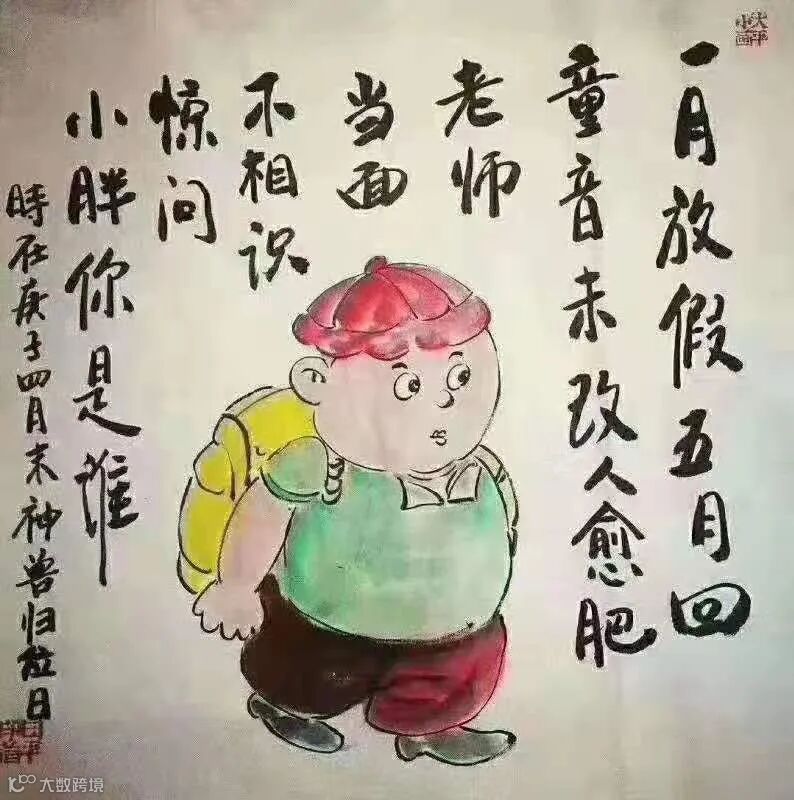 一月放假五月回
童音未改人愈肥
老师
当面
不相识
惊问
小胖你是谁
時在庚子四月末神兽归位日
大数跨境